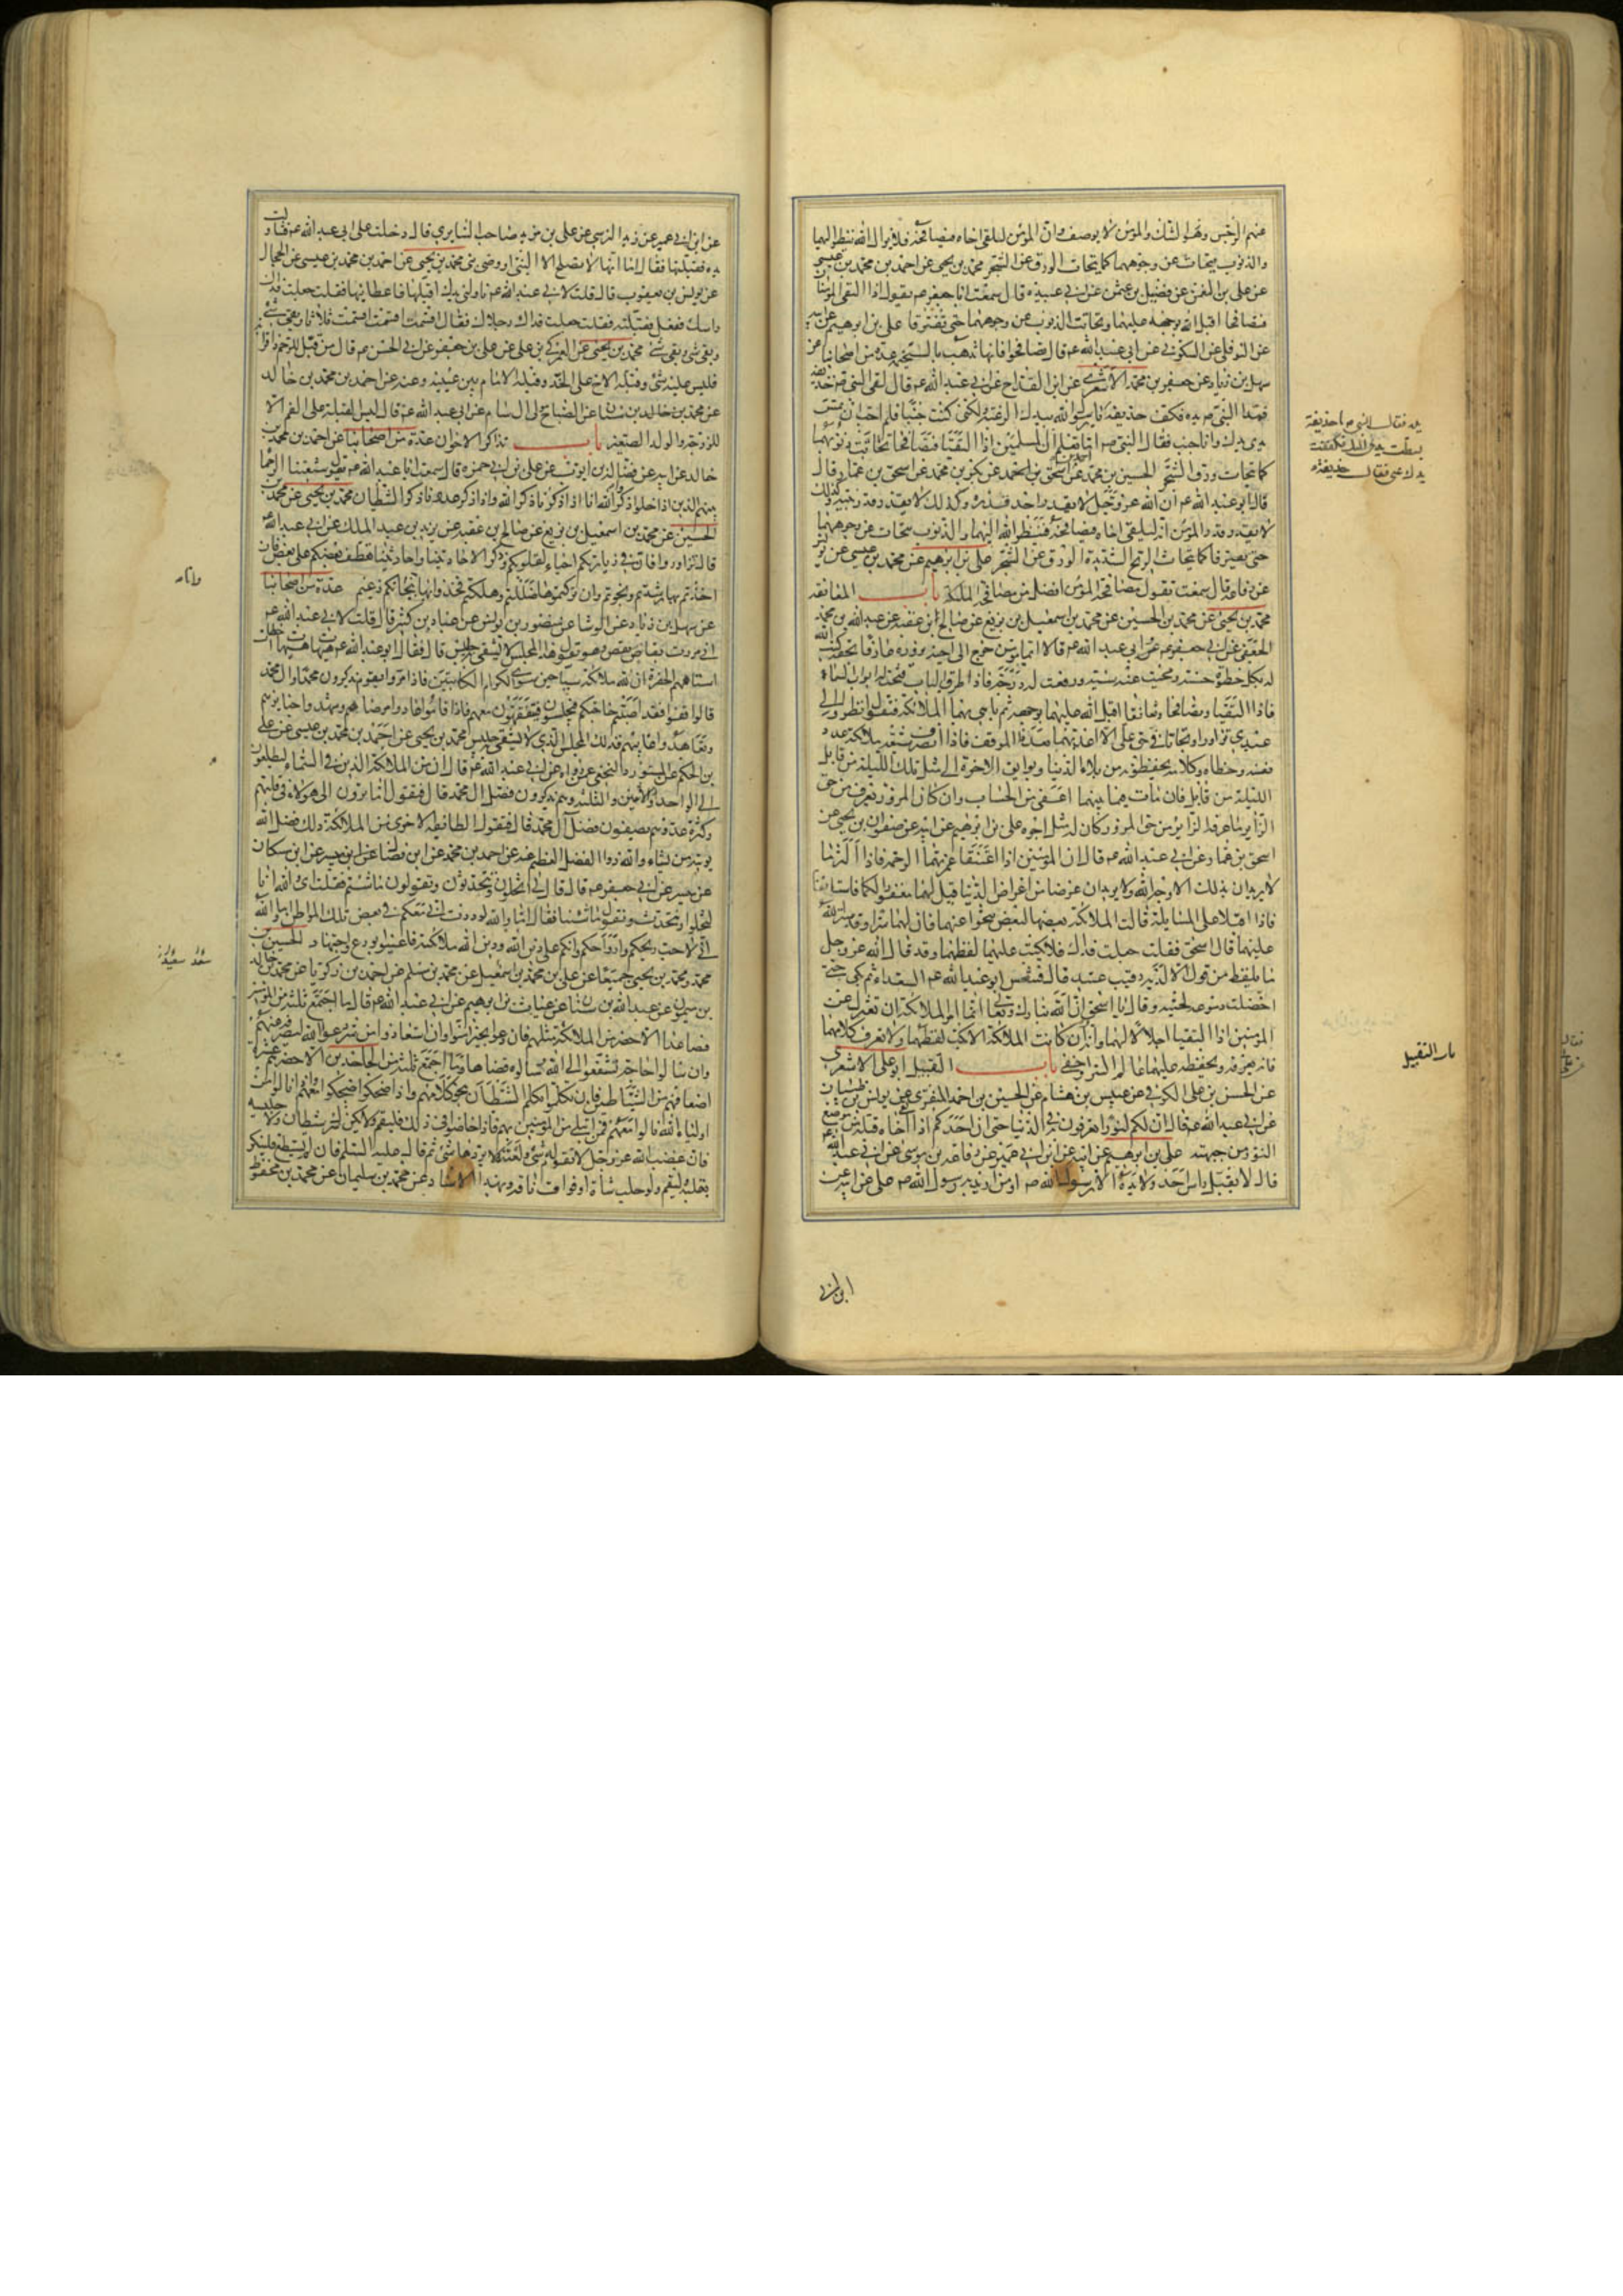 عنهم الرجس وهو الشك والمؤمن لا يوصف وان المؤمن ليلقى اخاه فيصافحه فلا يزال الله ينظر اليهما
والذنوب يتحات عن وجوههما كما يتحات الورق عن الشجر محمد بن يحيى عن احمد بن محمد بن عيسى
عن على بن عن فضيل بن عثمن عن ابى عبيدة قال سمعت ابا جعفر ع يقول اذا التقى المؤمنان
فتصافحا اقبل الله بوجهه عليهما وتحاتت الذنوب عن وجوههما حتى يفترقا على بن ابرهيم عن ابيه
عن النوفلى عن السكونى عن ابى عبد الله ع قال تصافحوا فانها تذهب بالسخيمة عدة من اصحابنا عن
سهل بن زياد عن جعفر بن محمد الاشعرى عن ابن القداح عن ابى عبد الله ع قال لقى النبى ص حذيفة
فمد النبى ص يده فكف حذيفة يا رسول الله بيدك الرغبة ولكنى كنت جنبا فلم احب ان تمس
يدى يدك وانا جنب فقال النبى ص اما تعلم ان المسلمين اذا التقيا فتصافحا تحاتت ذنوبهما
كما يتحات ورق الشجر الحسين بن محمد عن احمد بن اسحق عن بكر بن محمد عن اسحق بن عمار قال
قال ابو عبد الله ع ان الله عز وجل لا يقدر احد قدره وكذلك لا يقدر قدر نبيه وكذلك
لا يقدر قدر المؤمن انه ليلقى اخاه فيصافحه فينظر الله اليهما والذنوب يتحات عن وجوههما
حتى يفترقا كما يتحات الريح الشديدة الورق عن الشجر على بن ابرهيم عن محمد بن عيسى عن يونس
عن رفاعة قال سمعته يقول مصافحة المؤمن افضل من مصافحة الملئكة باب المعانقة
محمد بن يحيى عن محمد بن الحسين عن محمد بن اسمعيل بن بزيع عن صالح بن عقبة عن عبد الله بن محمد
الجعفى عن ابى جعفر ع عن ابى عبد الله ع قالا ايما مؤمن خرج الى اخيه يزوره عارفا بحقه كتب الله
له بكل خطوة حسنة ومحيت عنه سيئة ورفعت له درجة فاذا طرق الباب فتحت له ابواب السماء
فاذا التقيا وتصافحا وتعانقا اقبل الله عليهما بوجهه ثم باهى بهما الملائكة فيقول انظروا الى
عبدى تزاورا وتحابا فى حق على الا اعذبهما بعد هذا الموقف فاذا انصرف شيعه ملائكة عدد
نفسه وخطاه وكلامه يحفظونه من بلاء الدنيا وبوايق الاخرة الى مثل تلك الليلة من قابل
فان مات فيما بينهما اعفى من الحساب وان كان المزور يعرف من حق
الزاير ما عرفه الزاير من حق المزور كان له مثل اجره على بن ابرهيم عن ابيه عن صفوان بن يحيى عن
اسحق بن عمار عن ابى عبد الله ع قال ان المؤمنين اذا اعتنقا غمرتهما الرحمة فاذا التزما
لا يريدان بذلك الا وجه الله ولا يريدان عرضا من اغراض الدنيا قيل لهما مغفورا لكما فاستانفا
فاذا اقبلا على المسايلة قالت الملائكة بعضها لبعض تنحوا عنهما فان لهما سرا وقد ستر الله
عليهما قال اسحق فقلت جعلت فداك فلا يكتب عليهما لفظهما وقد قال الله عز وجل
ما يلفظ من قول الا لديه رقيب عتيد قال فتنفس ابو عبد الله ع الصعداء ثم بكى حتى
اخضلت دموعه لحيته وقال يا اسحق ان الله تبارك وتعالى انما امر الملائكة ان تعتزل عن
المؤمنين اذا التقيا اجلالا لهما وانه وان كانت الملائكة لا تكتب لفظهما ولا تعرف كلامهما
فانه يعرفه ويحفظه عليهما عالم السر واخفى باب التقبيل ابو على الاشعرى
عن الحسن بن على الكوفى عن عبيس بن هشام عن الحسين بن احمد المنقرى عن يونس بن ظبيان
عن ابى عبد الله ع قال ان لكم لنورا تعرفون به فى الدنيا حتى ان احدكم اذا لقى اخاه قبله فى موضع
النور من جبهته على بن ابرهيم عن ابيه عن ابن ابى عمير عن رفاعة بن موسى عن ابى عبد الله
قال لا يقبل راس احد ولا يده الا رسول الله ص او من اريد به رسول الله ص على عن ابيه
يده فقال النبى ص يا حذيفة
بسطت يدى اليك فكففت
يدك عنى فقال حذيفة
باب التقبيل
عن ابن ابى عمير عن زيد النرسى عن على بن مزيد صاحب السابرى قال دخلت على ابى عبد الله ع فتناولت
يده فقبلتها فقال اما انها لا تصلح الا لنبى او وصى نبى محمد بن يحيى عن احمد بن محمد بن عيسى عن الحجال
عن يونس بن يعقوب قال قلت لابى عبد الله ع ناولنى يدك اقبلها فاعطانيها فقلت جعلت فداك
راسك ففعل فقبلته فقلت جعلت فداك رجلاك فقال اقسمت اقسمت اقسمت ثلاثا وبقى شئ
وبقى شئ وبقى شئ محمد بن يحيى عن العمركى بن على عن على بن جعفر عن ابى الحسن ع قال من قبل للرحم ذا قرابة
فليس عليه شئ وقبلة الاخ على الخد وقبلة الامام بين عينيه وعنه عن احمد بن محمد بن خالد
عن محمد بن سنان عن الصباح مولى ال سام عن ابى عبد الله ع قال ليس القبلة على الفم الا
للزوجة والولد الصغير باب تذاكر الاخوان عدة من اصحابنا عن احمد بن محمد بن
خالد عن ابيه عن فضالة بن ايوب عن على بن ابى حمزة قال سمعت ابا عبد الله ع يقول شيعتنا الرحماء
بينهم الذين اذا خلوا ذكروا الله انا اذا ذكرنا ذكر الله واذا ذكر عدونا ذكر الشيطان محمد بن يحيى عن محمد بن
الحسين عن محمد بن اسمعيل بن بزيع عن صالح بن عقبة عن يزيد بن عبد الملك عن ابى عبد الله ع
قال تزاوروا فان فى زيارتكم احياء لقلوبكم وذكرا لاحاديثنا واحاديثنا تعطف بعضكم على بعض فان
اخذتم بها رشدتم ونجوتم وان تركتموها ضللتم وهلكتم فخذوا بها انا بنجاتكم زعيم عدة من اصحابنا
عن سهل بن زياد عن الوشا عن منصور بن يونس عن عباد بن كثير قال قلت لابى عبد الله ع
انى مررت بقاص يقص وهو يقول هذا المجلس لا يشقى به جليس قال فقال ابو عبد الله ع هيهات هيهات اخطات
استاههم الحفرة ان لله ملائكة سياحين سوى الكرام الكاتبين فاذا مروا بقوم يذكرون محمدا وال محمد
قالوا قفوا فقد اصبتم حاجتكم فيجلسون فيتفقهون معهم فاذا قاموا عادوا مرضاهم وشهدوا جنايزهم
وتعاهدوا غايبهم فذلك المجلس الذى لا يشقى به جليس محمد بن يحيى عن احمد بن محمد بن عيسى عن على
بن الحكم عن المستورد النخعى عمن رواه عن ابى عبد الله ع قال ان من الملائكة الذين فى السماء ليطلعون
الى الواحد والاثنين والثلثة وهم يذكرون فضل ال محمد قال فيقول اما ترون الى هؤلاء فى قلتهم
وكثرة عدوهم يصفون فضل آل محمد قال فيقول الطائفة الاخرى من الملائكة ذلك فضل الله
يؤتيه من يشاء والله ذو الفضل العظيم عنه عن احمد بن محمد عن ابن فضال عن ابن مسكان
عن ميسر عن ابى جعفر ع قال قال لى اتخلون وتتحدثون وتقولون ما شئتم فقلت اى والله انا
لنخلوا ونتحدث ونقول ما شئنا فقال اما والله لوددت انى معكم فى بعض تلك المواطن اما والله
انى لاحب ريحكم وارواحكم وانكم على دين الله ودين ملائكته فاعينوا بورع واجتهاد الحسين بن
محمد ومحمد بن يحيى جميعا عن على بن محمد بن اسمعيل عن محمد بن مسلم عن احمد بن زكريا عن محمد بن خالد
بن ميمون عن عبد الله بن سنان عن غياث بن ابرهيم عن ابى عبد الله ع قال ما اجتمع ثلثة من المؤمنين
فصاعدا الا حضر من الملائكة مثلهم فان دعوا بخير امنوا وان استعاذوا من شر دعوا الله ليصرفه عنهم
وان سالوا حاجة تشفعوا الى الله وسالوه قضاها وما اجتمع ثلثة من الجاحدين الا حضرهم عشرة
اضعافهم من الشياطين فان تكلموا تكلم الشيطان بنحو كلامهم واذا ضحكوا ضحكوا معهم واذا نالوا من
اولياء الله نالوا معهم فمن ابتلى من المؤمنين بهم فاذا خاضوا فى ذلك فليقم ولا يكن شرك شيطان ولا جليسه
فان غضب الله عز وجل لا يقوم له شئ ولعنته لا يردها شئ ثم قال عليه السلم فان لم يستطع فلينكر
بقلبه وليقم ولو حلب شاة او فواق ناقة وبهذا الاسناد عن محمد بن سليمان عن محمد بن محفوظ